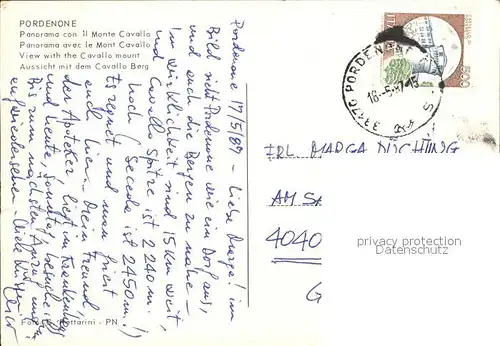 PORDENONE
Panorama con il Monte Cavallo
Panorama avec le Mont Cavallo
View with the Cavallo mount
Aussicht mit dem Cavallo Berg
Pordenone 17/5/87 - Liebe Marga! im
Bild sieht Pordenone wie ein Dorf aus,
und auch die Bergen zu nahe -
im wirklichkeit sind 15 Km weit,
und Cavallo Spitze ist 2240 m.
hoch (Seceda ist 2450 m.!)
Es regnet und man friert
auch hier. Mein Freund
der Apoteker liegt im Krankenhaus
und heute Sonntag, besuche
Bis zum nächsten Anruf und
aufwiedersehen.
33170 PORDENONE
16-5.87-15
500
FRL. MARGA
AM SA
4040
privacy protection
Datenschutz
- PN